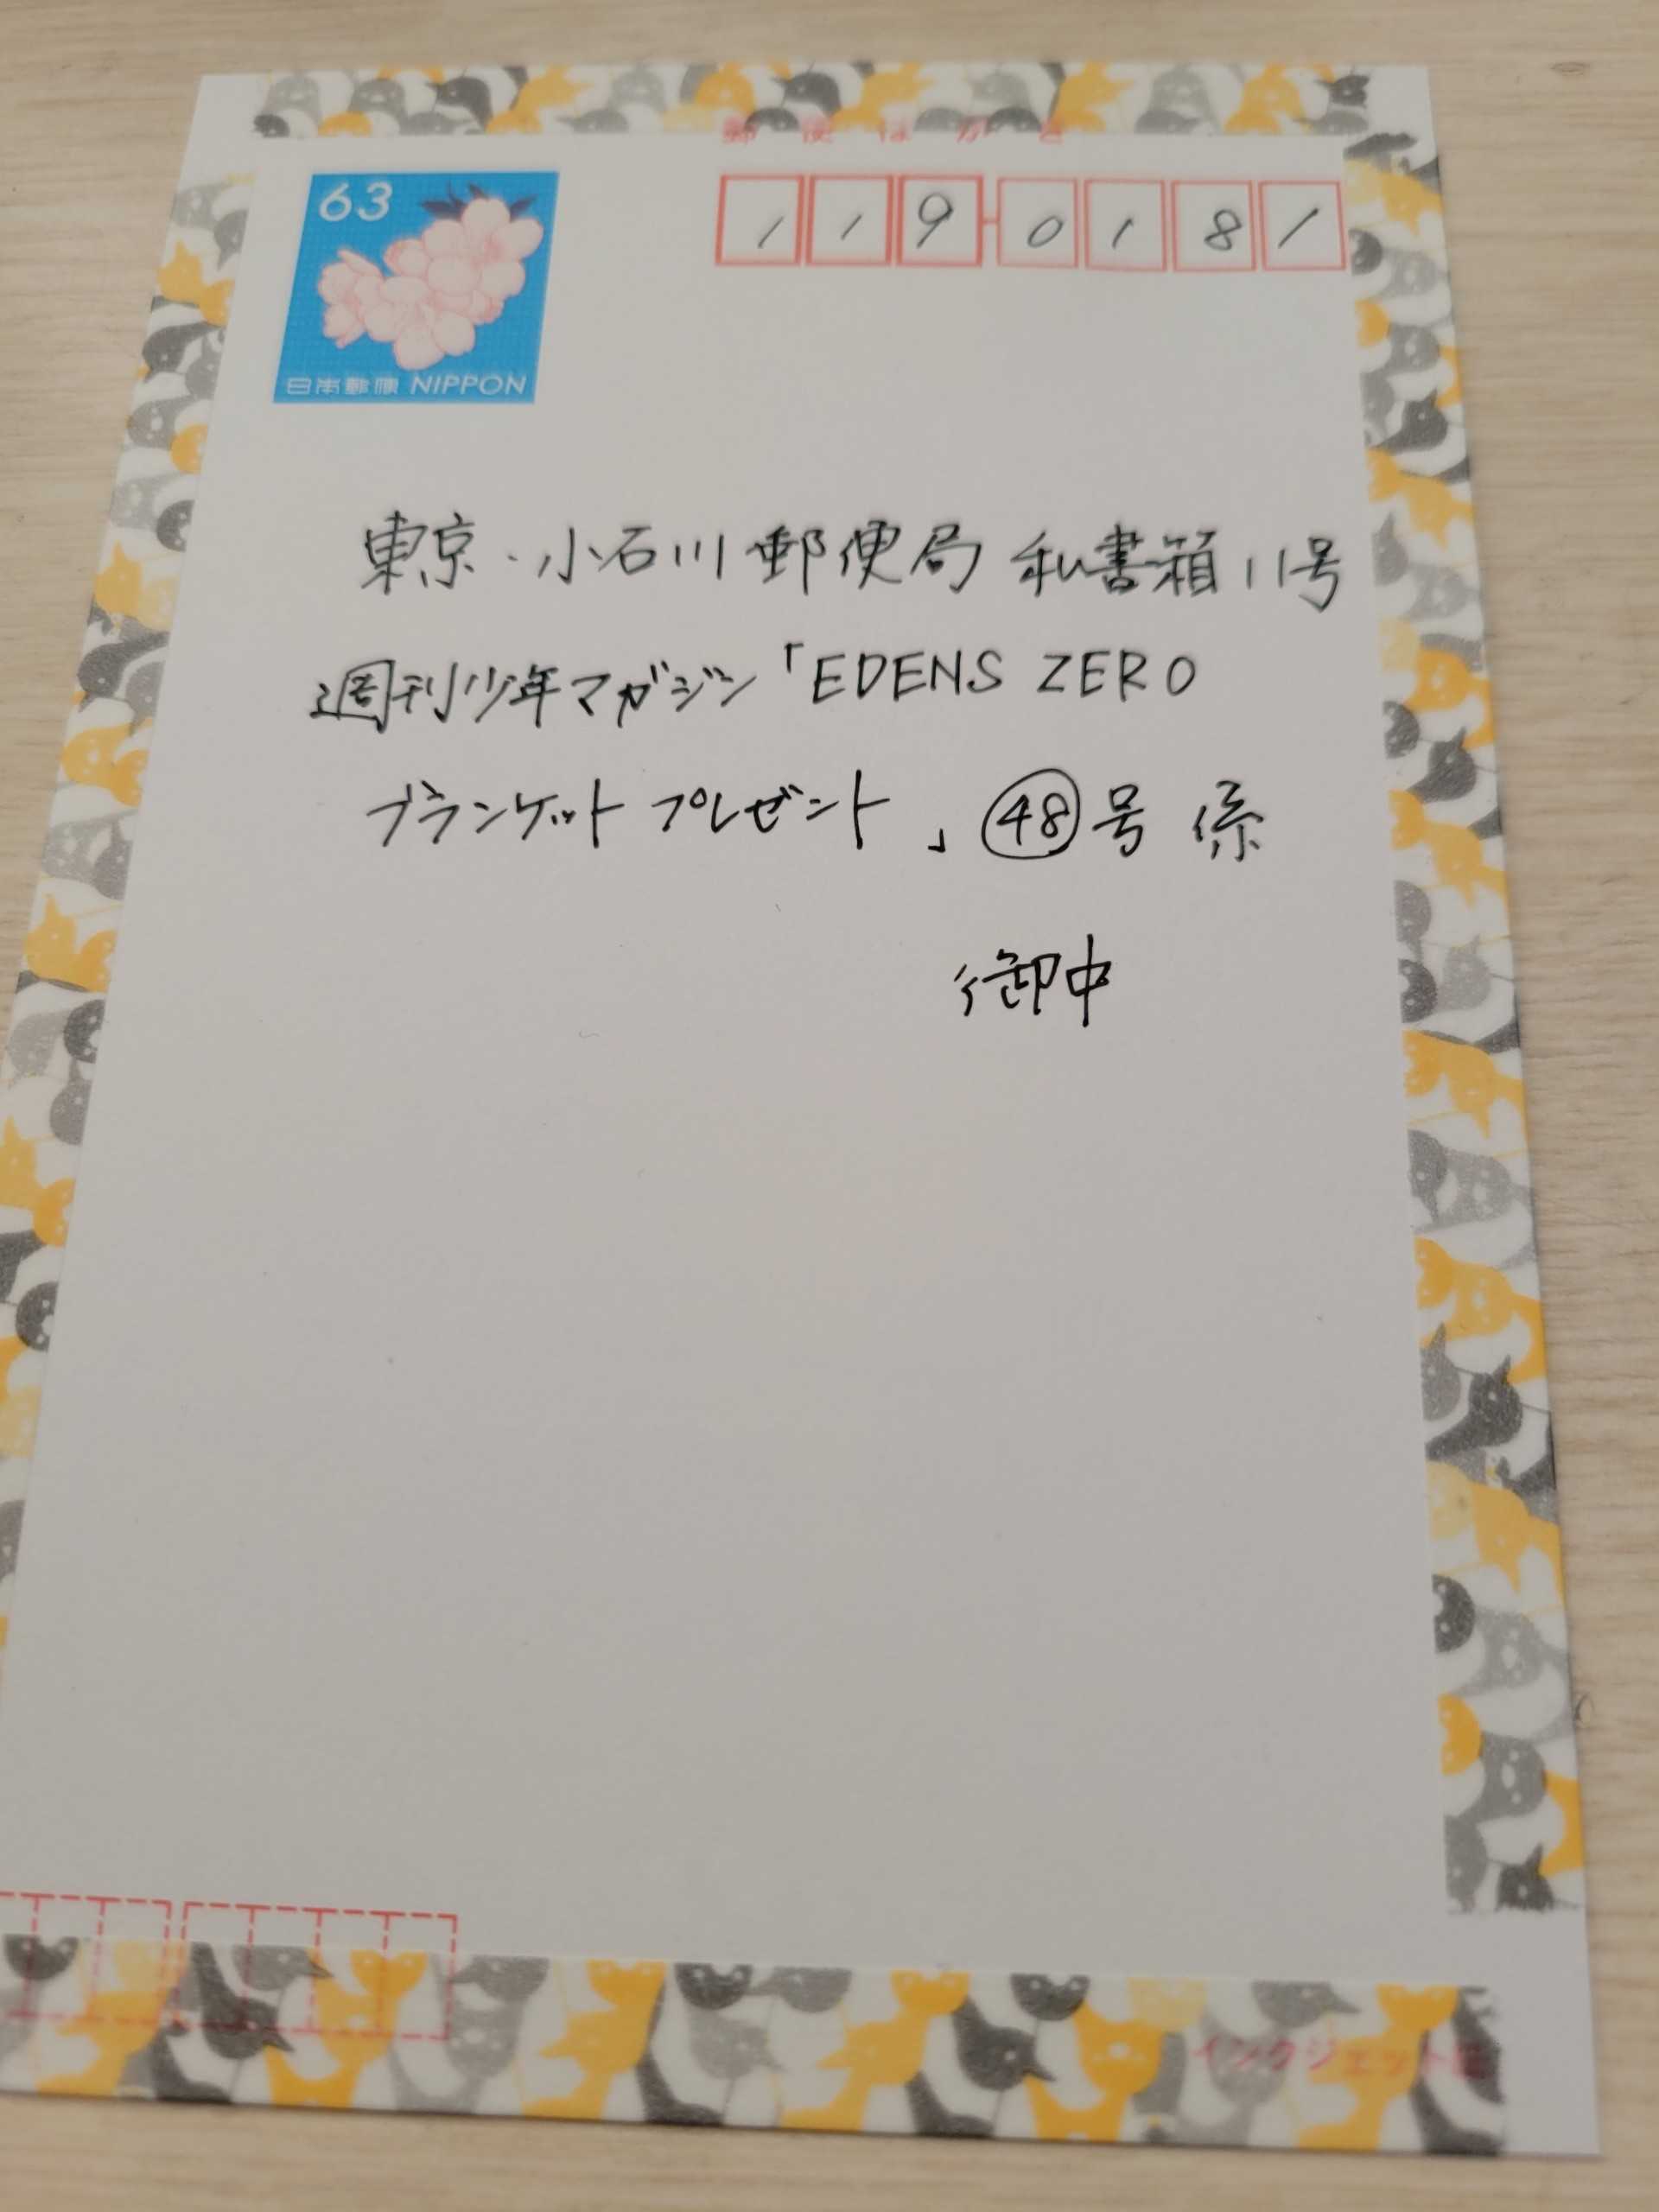 郵便はがき
63
日本郵便 NIPPON
119-0181
東京・小石川郵便局 私書箱11号
週刊少年マガジン「EDENS ZERO
ブランケットプレゼント」㊽号係
御中
インクジェット紙